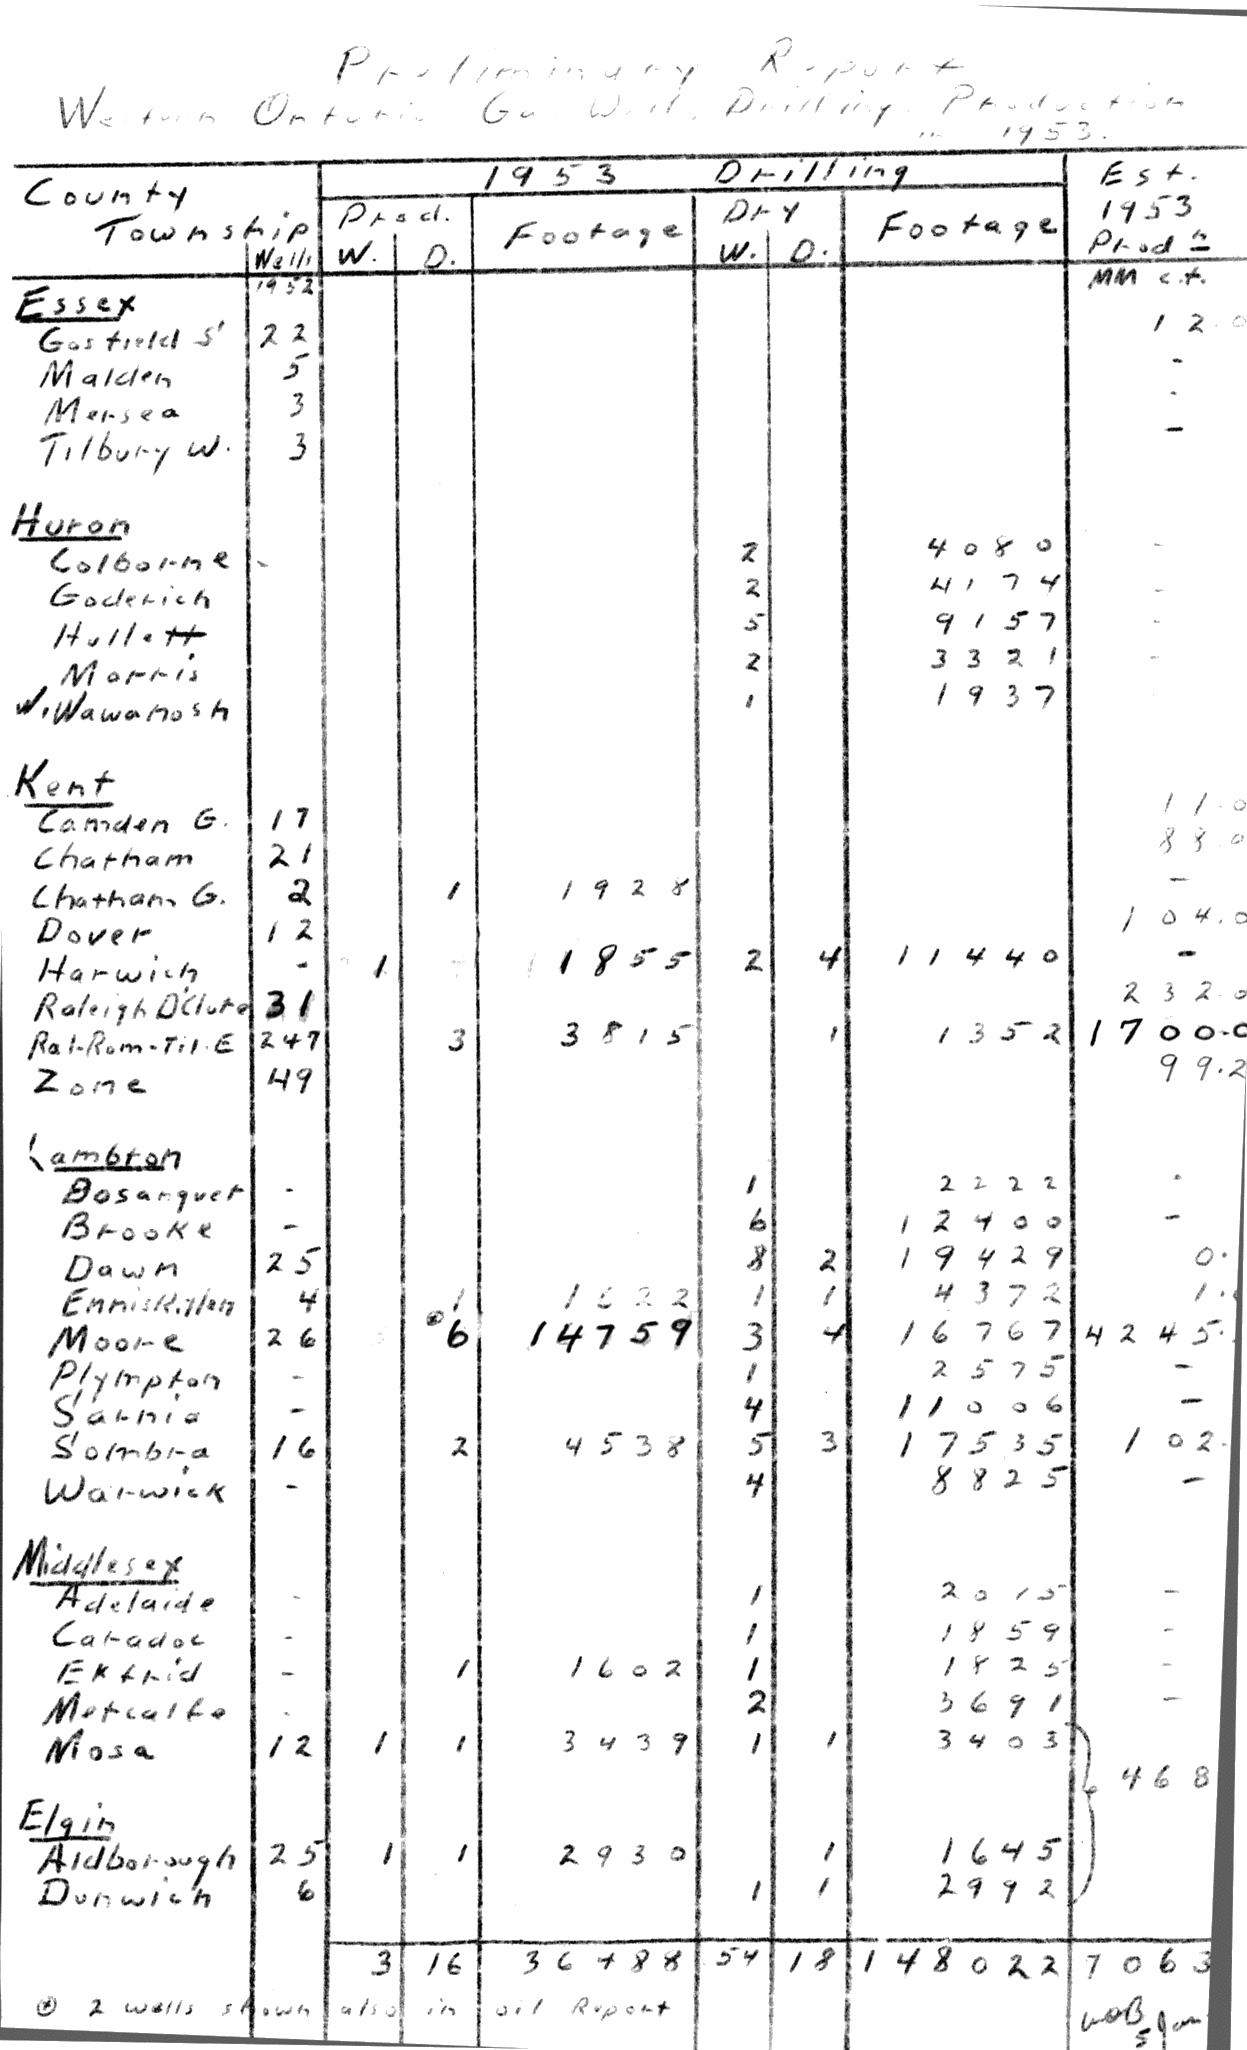 Preliminary Report
Western Ontario Gas Well Drilling Production
in 1953.
County 1953 Drilling Est.
Township Prod. Footage Dry Footage 1953
Wells W. D. W. D. Prod n
1952 MM c.f.
Essex
Gosfield S 22 12.0
Malden 5 -
Mersea 3 -
Tilbury W. 3 -
Huron
Colborne - 2 4080 -
Goderich 2 4174 -
Hullett 5 9157 -
Morris 2 3321 -
W. Wawanosh 1 1937
Kent
Camden G. 17 11.0
Chatham 21 88.0
Chatham G. 2 1 1928 -
Dover 12 104.0
Harwich - 1 1855 2 4 11440 -
Raleigh D'Clute 31 232.0
Ral-Rom-Til.E 247 3 3815 1 1352 1700.0
Zone 49 99.2
Lambton
Bosanquet - 1 2222 -
Brooke - 6 12400 -
Dawn 25 8 2 19429 0.
Enniskillen 4 1 1622 1 1 4372 1.
Moore 26 ⊙6 14759 3 4 16767 4245.
Plympton - 1 2575 -
Sarnia - 4 11006 -
Sombra 16 2 4538 5 3 17535 102.
Warwick - 4 8825 -
Middlesex
Adelaide - 1 2015 -
Caradoc - 1 1859 -
Ekfrid - 1 1602 1 1825 -
Metcalfe - 2 3691 -
Mosa 12 1 1 3439 1 1 3403
468
Elgin
Aldborough 25 1 1 2930 1 1645
Dunwich 6 1 1 2992
3 16 36488 54 18 148022 7063
⊙ 2 wells shown also in oil Report
5 Jan